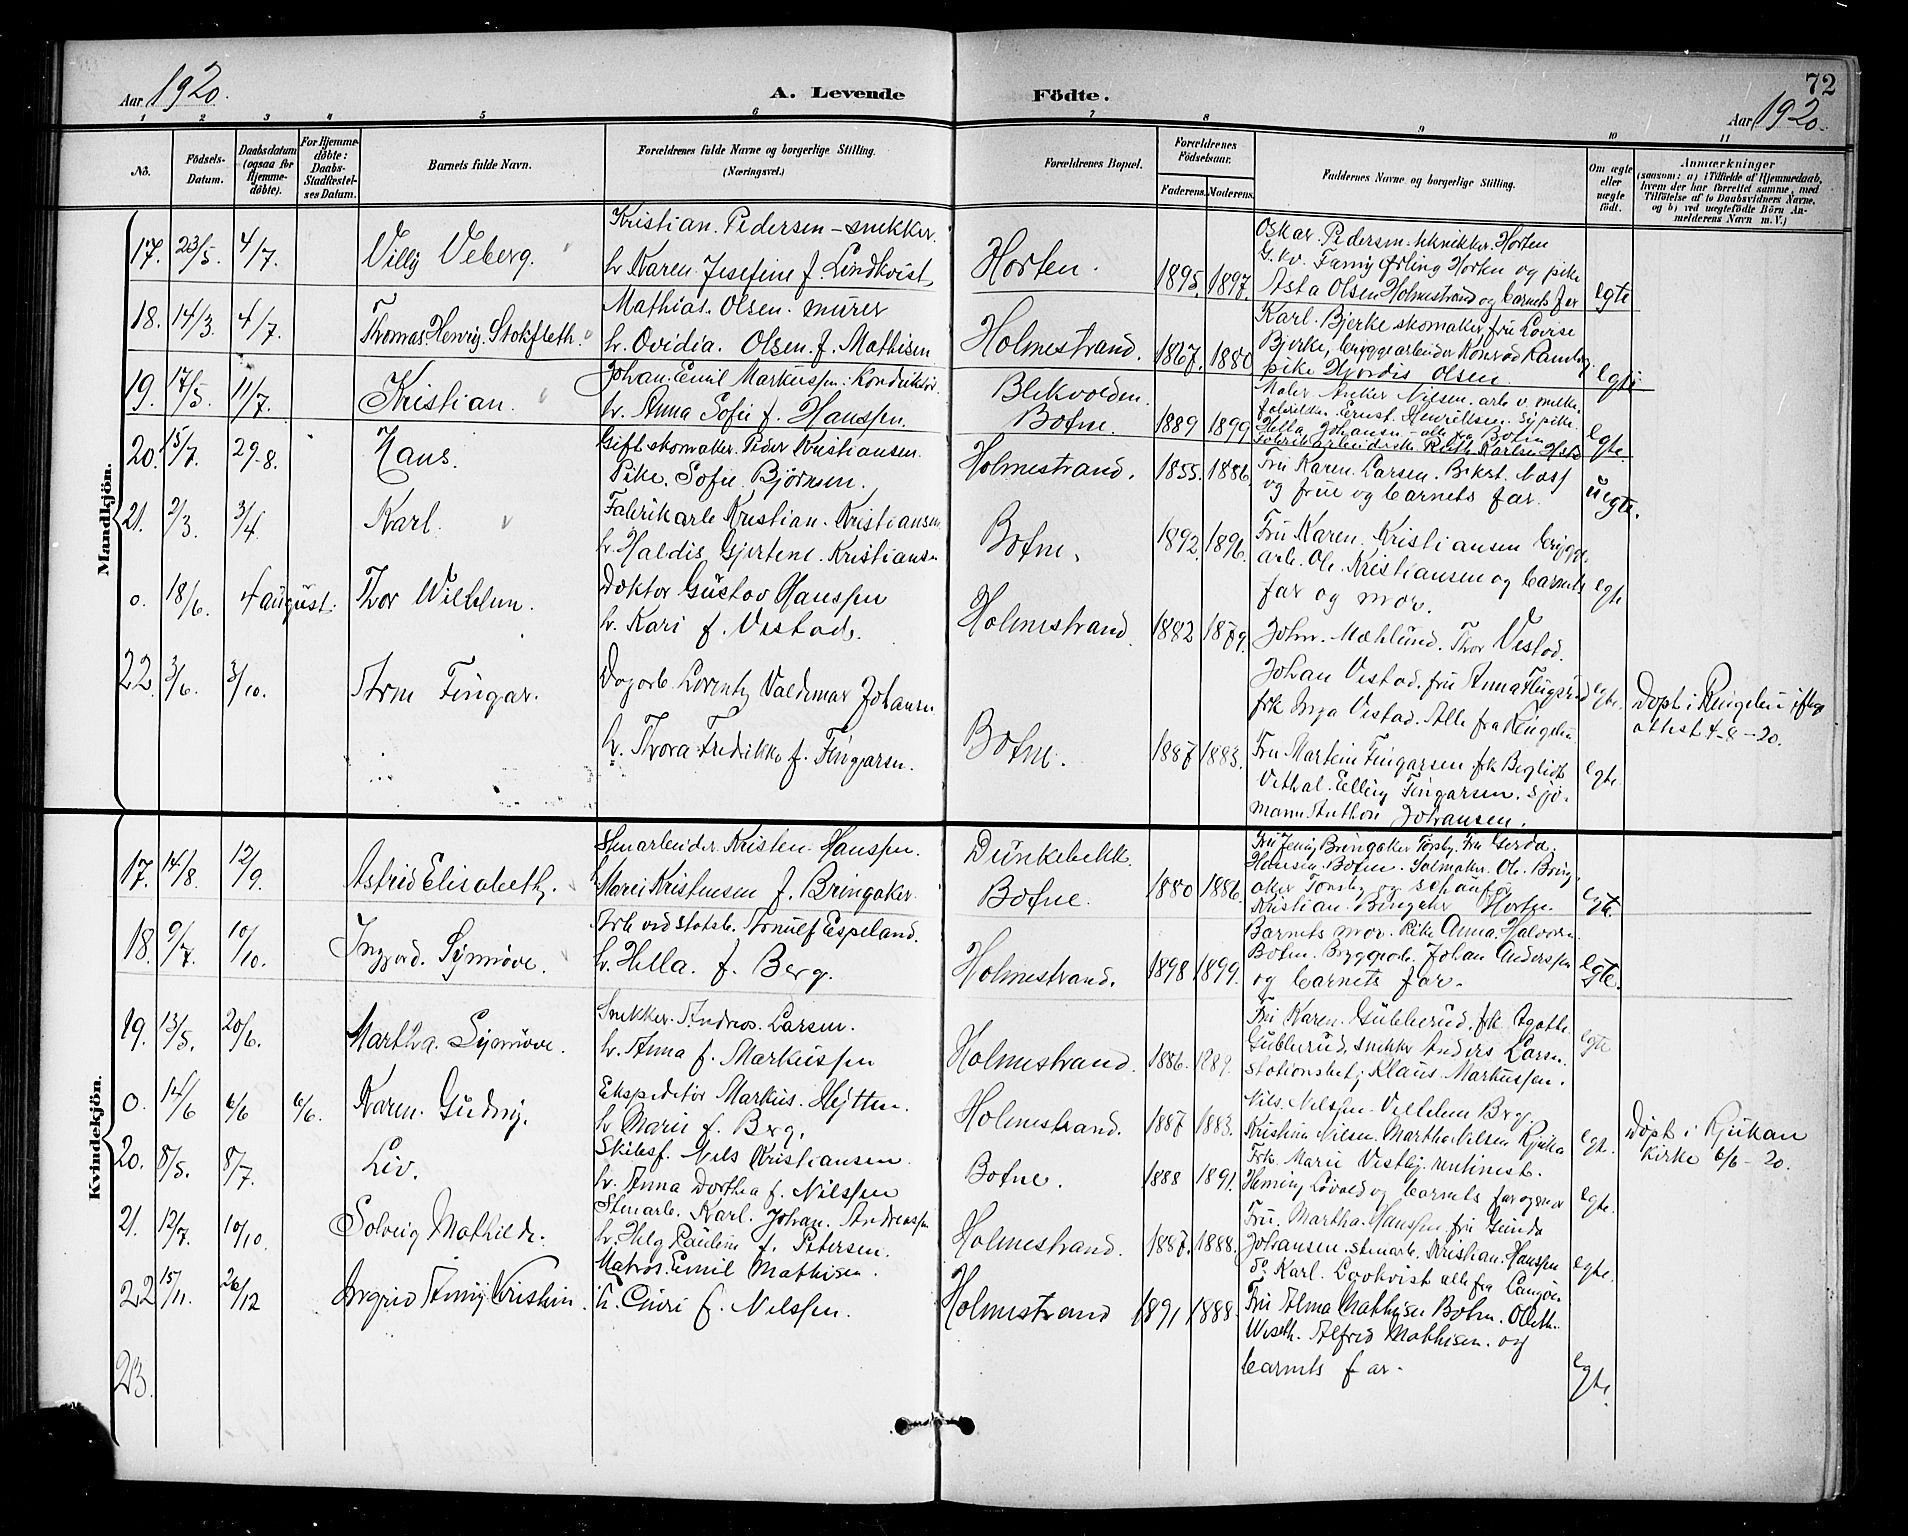 Aar 1920.
A. Levende Födte.
72
Aar 1920.
1 2 3 4 5 6 7 8 9 10 11
No.
Födsels-Datum.
Daabsdatum (ogsaa for Hjemme-døbte).
For Hjemme-døbte: Daabs-Stadfæstel-ses Datum.
Barnets fulde Navn.
Forældrenes fulde Navne og borgerlige Stilling.
(Næringsvei.)
Forældrenes Bopæl.
Forældrenes Födselsaar.
Faderens. Moderens.
Faddernes Navne og borgerlige Stilling.
Om ægte eller uægte født.
Anmærkninger
(saasom: a) i Tilfælde af Hjemmedaab, hvem der har forrettet samme, med Tilföielse af to Daabsvidners Navne, og b) ved uægtefödte Börn An-melderens Navn m. V.)
Mandkjön.
17. 23/5. 4/7. Villy Veberg. Kristian. Pedersen - snekker.
h. Karen Josefine f. Lindkvist Horten. 1895. 1897.
Oskar. Pedersen. tekniker. Horten
G. kv. Fanny Ørling Horten og pike
Asta Olsen Holmestrand og barnets far egte
18. 14/3. 4/7. Thomas Henry. Stokfleth. Mathias. Olsen. murer
h. Ovidia. Olsen. f. Mathisen Holmestrand. 1867. 1880
Karl. Bjerke skomaker, fru Lovise
Bjerke, bryggearbeider Konrad
pike Hjordis Olsen. egte
19. 17/5 11/7. Kristian. Johan. Emil Markussen.
h. Anna Sofie f. Hanssen. Blekvolden.
Botne. 1889 1899
Maler Anker Nilsen. arb. v.
Ernst. Henriksen. sypike.
Hella Johansen - alle fra Botne egte.
20. 15/7. 29-8. Hans. Gift skomaker. Peder Kristiansen.
Pike. Sofie. Bjørnsen. Holmestrand. 1855. 1886
Fabrikarbeiderske Ruth Karlsen
Fru Karen. Larsen. Næss
og frue og barnets far. uegte.
21. 2/3. 3/4 Karl. Fabrikarb Kristian. Kristiansen
h. Haldis Gjertine. Kristiansen Botne. 1892. 1896.
Fru Karen. Kristiansen brygge
arb. Ole. Kristiansen og barnets
far og mor. egte
0. 18/6. 4 august. Thor Wilhelm. Doktor Gustav Hanssen
h. Kari f. Vestad. Holmestrand. 1882 1879.
John. Mæhlund. Thor Vestad.
Johan Vestad. fru Anna
frk Inga Vestad. Alle fra egte.
attest 4-8-20.
22. 3/6. 3/10. Arne Fingar. Dagarb. Lorentz Valdemar Johansen
h. Thora Fredikke f. Fingarsen. Botne. 1887 1883.
Fru Martein Fingarsen. frk
Elling Fingarsen. Sjø.
mann Anthon Johansen. egte
Kvindekjön.
17. 14/8. 12/9. Astrid Elisabeth. Stenarbeider. Kristen. Hanssen.
h. Marei Kristensen f. Bringaker. Dunkebekk.
Botne. 1880 1886.
Fru Jenny Bringaker Fru Gerda.
Hansen. Botne. Ole. Bring
aker og
Kristian. Horten. egte.
18. 9/7. 10/10. Ingjerd. Synnøve. Arb ved statsb. Arnulf Espeland.
h. Hella. f. Berg. Holmestrand. 1898 1899.
Barnets mor. Pike Anna. Halvorsen.
Botne. Johan Anderssen
og barnets far. egte.
19. 13/5. 20/6. Martha. Synnøve. Snekker. Andreas. Larsen.
h. Anna f. Markussen Holmestrand. 1886. 1889.
Fru Karen. Gubberud, frk. Agathe.
Gubberud, snekker Anders Larsen.
stationsbetj Klaus. Markussen. egte
0. 12/6 6/6 6/6. Karen. Gudny. Ekspeditør Markus. Hytten.
h Marie f. Berg. Holmestrand. 1887 1883.
Nils. Nilssen. Vilhelm Berg
Kristine Nilsen. Martha Nilsen Rjukan egte.
Døpt i Rjukan
kirke 6/6-20.
20. 8/5. 8/7. Liv. Nils Kristiansen.
h. Anna Dorthea f. Nilssen Botne. 1888 1891.
Frk. Marie Vestby. rentinest.
Henny Løvald og barnets far og mor egte.
21. 12/7. 10/10. Solveig Mathilde. Stenarb. Karl. Johan. Andreassen
h. Helg Pauline f. Petersen. Holmestrand. 1887. 1888.
Fru. Martha. Hanssen. fru Gunda
Johansen. stenarb. Kristian. Hanssen
Do Karl. Lovkvist alle fra Langøen. egte.
22 15/11. 26/12 Ingrid Anny Kristine. Matros. Emil Mathisen.
h. Guri f. Nilssen. Holmestrand 1891 1888.
Fru Alma Mathisen Botne.
Alfred Mathisen. og
barnets far. egte.
23.